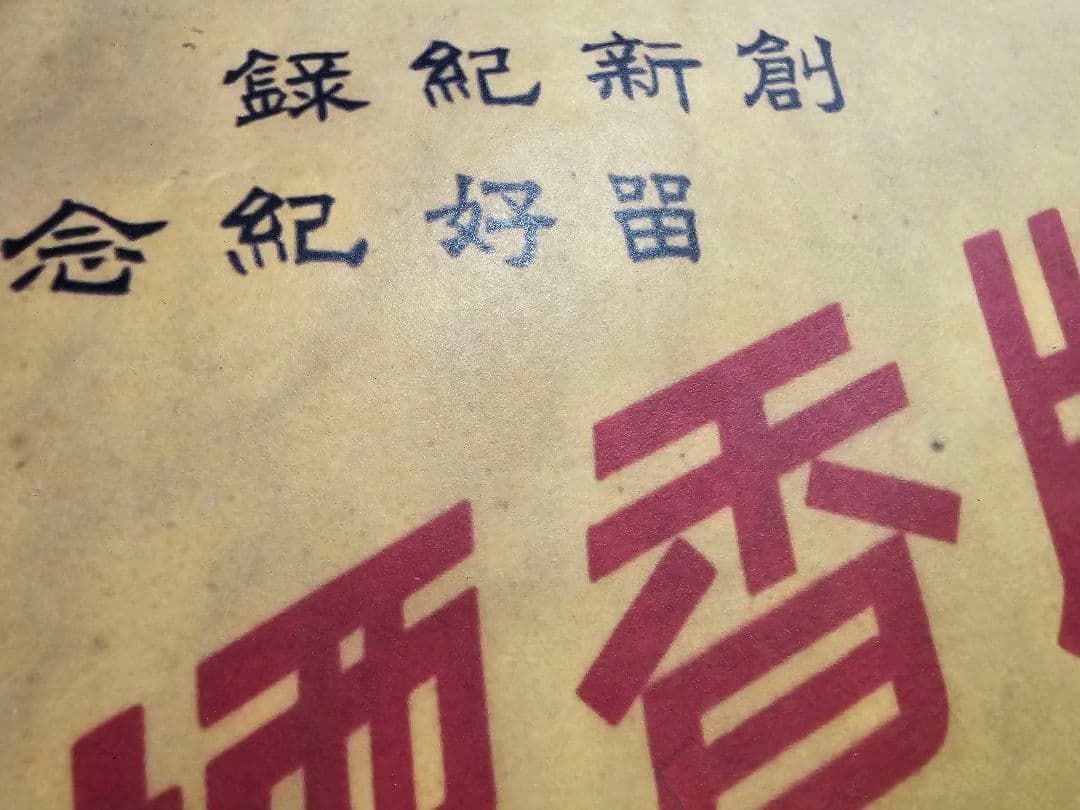 創新紀錄
留好紀念
香煙